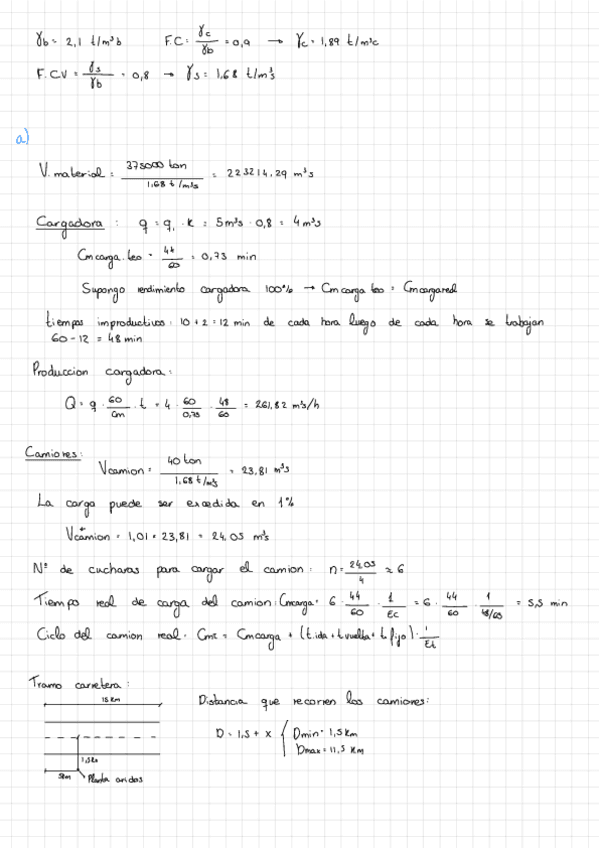 γb = 2,1 t/m³b F.C = γc/γb = 0,9 → γc = 1,89 t/m³c
F.CV = γs/γb = 0,8 → γs = 1,68 t/m³s
a)
V. material = 375000 ton / 1,68 t/m³s = 223214,29 m³s
Cargadora : q = q₁ · K = 5m³s · 0,8 = 4 m³s
Cm carga. teo = 44/60 = 0,73 min
Supongo rendimiento cargadora 100% → Cm carga teo = Cm carga real
tiempos improductivos : 10 + 2 = 12 min de cada hora luego de cada hora se trabajan
60 - 12 = 48 min
Produccion cargadora :
Q = q · 60/Cm · t = 4 · 60/0,73 · 48/60 = 261,82 m³s/h
Camiones:
Vcamion = 40 ton / 1,68 t/m³s = 23,81 m³s
La carga puede ser excedida en 1%
Vcamion⁺ = 1,01 · 23,81 = 24,05 m³s
Nº de cucharas para cargar el camion : n = 24,05/4 ≈ 6
Tiempo real de carga del camion : Cmcarga = 6 · 44/60 · 1/Ec = 6 · 44/60 · 1/(48/60) = 5,5 min
Ciclo del camion real · Cmt = Cmcarga + (t.ida + t.vuelta + t fijo) · 1/Et
Tramo carretera :
15 Km
Distancia que recorren los camiones:
D = 1,5 + x { Dmin = 1,5 Km
Dmax = 11,5 Km
1,5 Km
5Km
Planta aridos